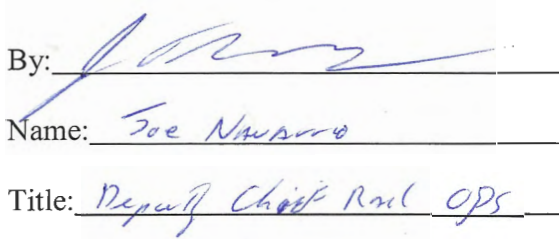 By:
Name: Joe Navarro
Title: Deputy Chief Rail Ops